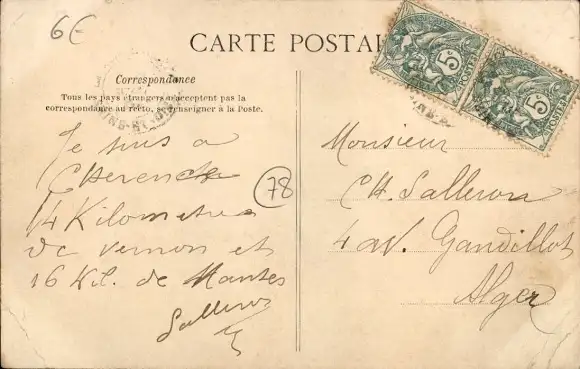 6€
CARTE POSTAL
Correspondance
Tous les pays étrangers n'acceptent pas la
correspondance au recto, se renseigner à la Poste.
Je suis a
14 Kilometres
de vernon et
16 Kil. de Mantes
Salleron
78
Monsieur
Ch. Salleron
4 av. Gandillot
Alger
5c
POSTES
5c
POSTES